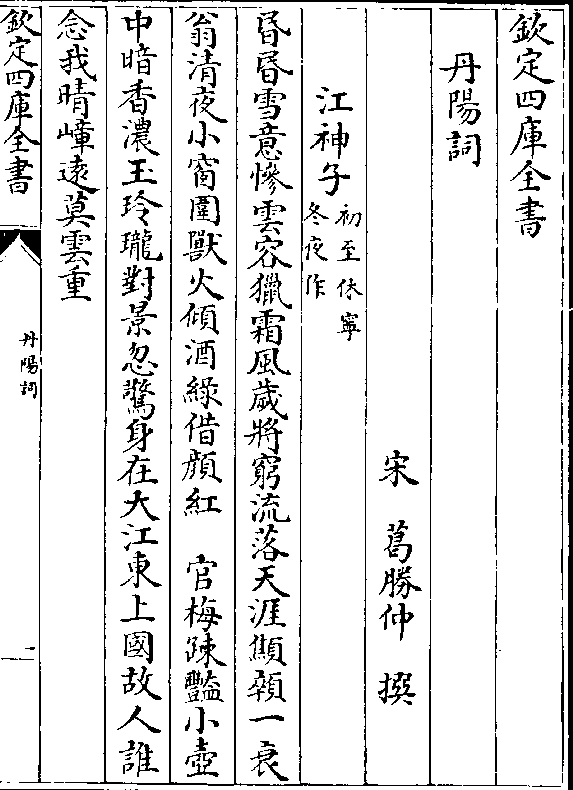 欽定四庫全書
丹陽詞
宋　葛勝仲　撰
江神子初至休寧冬夜作
昏昏雪意慘雲容獵霜風歲將窮流落天涯顦顇一衰
翁清夜小窗圍獸火傾酒綠借顔紅　官梅疎豔小壺
中暗香濃玉玲瓏對景忽驚身在大江東上國故人誰
念我晴嶂遠莫雲重
欽定四庫全書
丹陽詞
一